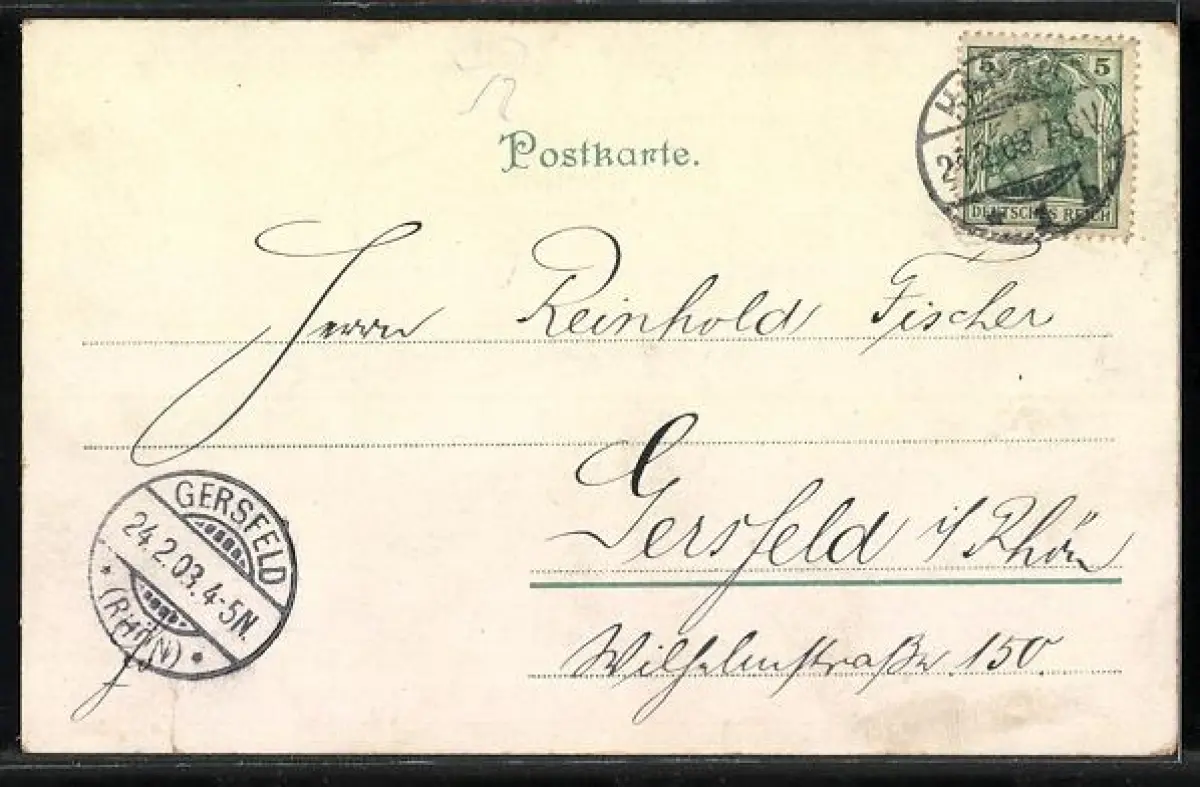 5 5
DEUTSCHES REICH
.2.03 7-8V
Postkarte.
Herrn Reinhold Fischer
Gersfeld i/ Rhön
Wilhelmstraße 150
GERSFELD
24.2.03. 4-5N.
* (RHÖN) *